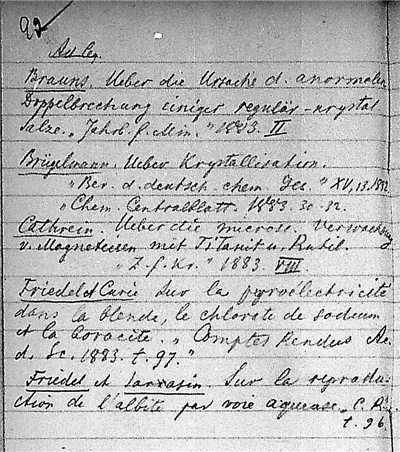 92
Ad leg.
Brauns. Ueber die Ursache d. anormalen
Doppelbrechung einiger regulär-krystal.
Salze. „ Jahrb. f. Min. " 1883. II
Brügelmann. Ueber Krystallisation.
„ Ber. d. deutsch. chem. Ges. " XV, 13. 1882
„ Chem. Centralblatt. 1883. 30-32.
Cathrein. Ueber die microsc. Verwachsung
v. Magneteisen mit Titanit u. Rutil.
„ Z. f. Kr. " 1883. VIII.
Friedel et Curie Sur la pyroélectricité
dans la blende, le chlorate de sodium
et la boracite. „ Comptes Rendus Ac.
d. Sc. 1883. t. 97. "
Friedel et Sarrasin. Sur la reproduc-
ction de l'albite par voie aqueuse. „ C. R.
t. 96.